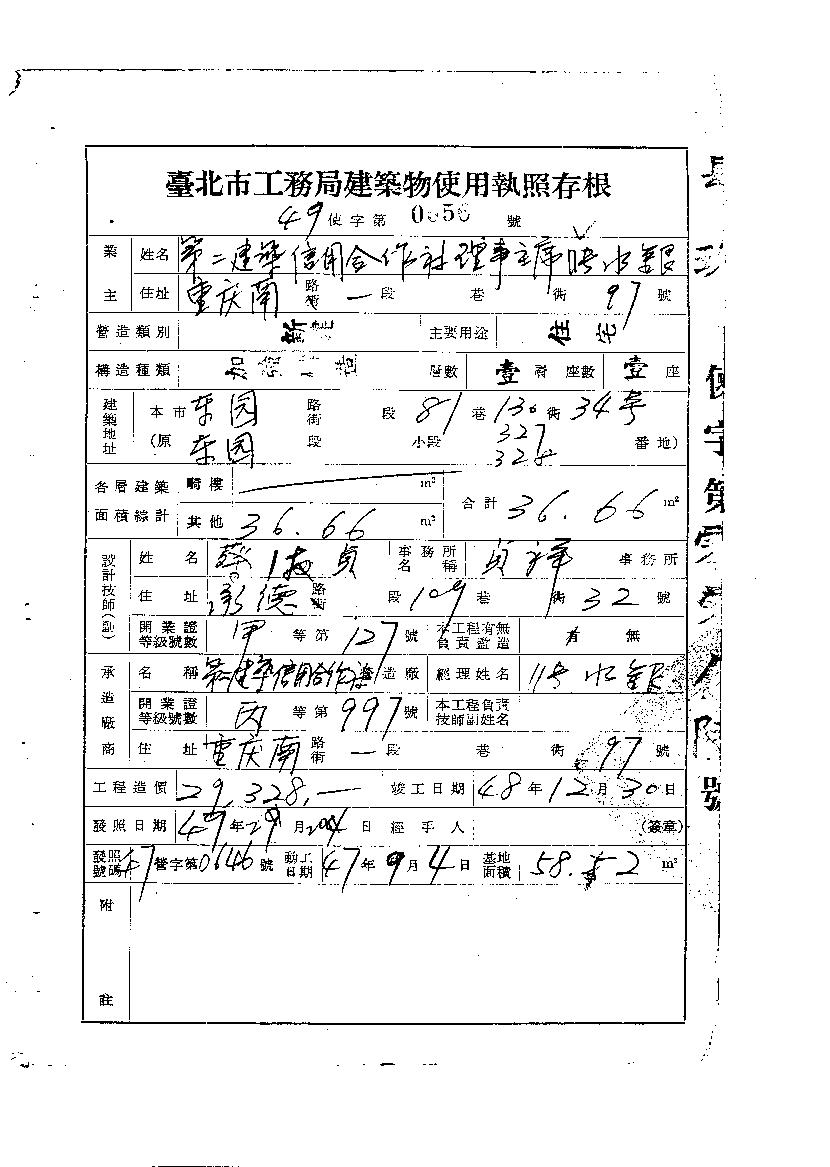 臺北市工務局建築物使用執照存根
49使字第0056號
業主 姓名 第二建築信用合作社理事主席 水銀
住址 重庆南路街一段 巷 衖 97號
營造類別 新建 主要用途 住宅
構造種類 加強 造 層數 壹層 座數 壹座
建築地址 本市东园路街 段81巷130衖34号
(原 东园段 小段 327 328 番地)
各層建築面積綜計 騎樓 m² 合計 36.66 m²
其他 36.66 m²
設計技師(副) 姓名 蔡 貞 事務所名稱 貞祥 事務所
住址 承德路街 段109巷 衖32號
開業證等級號數 甲等第127號 本工程有無負責監造 有 無
承造廠商 名稱 第二建築信用合作社 營造廠 經理姓名 水銀
開業證等級號數 丙等第997號 本工程負責技師副姓名
住址 重庆南路街一段 巷 衖 97號
工程造價 29,328.— 竣工日期 48年12月30日
發照日期 49年 月 日 經手人 (簽章)
發照號碼 47營字第0646號 動工日期 47年9月4日 基地面積 58.52 m²
附註
使字第
號